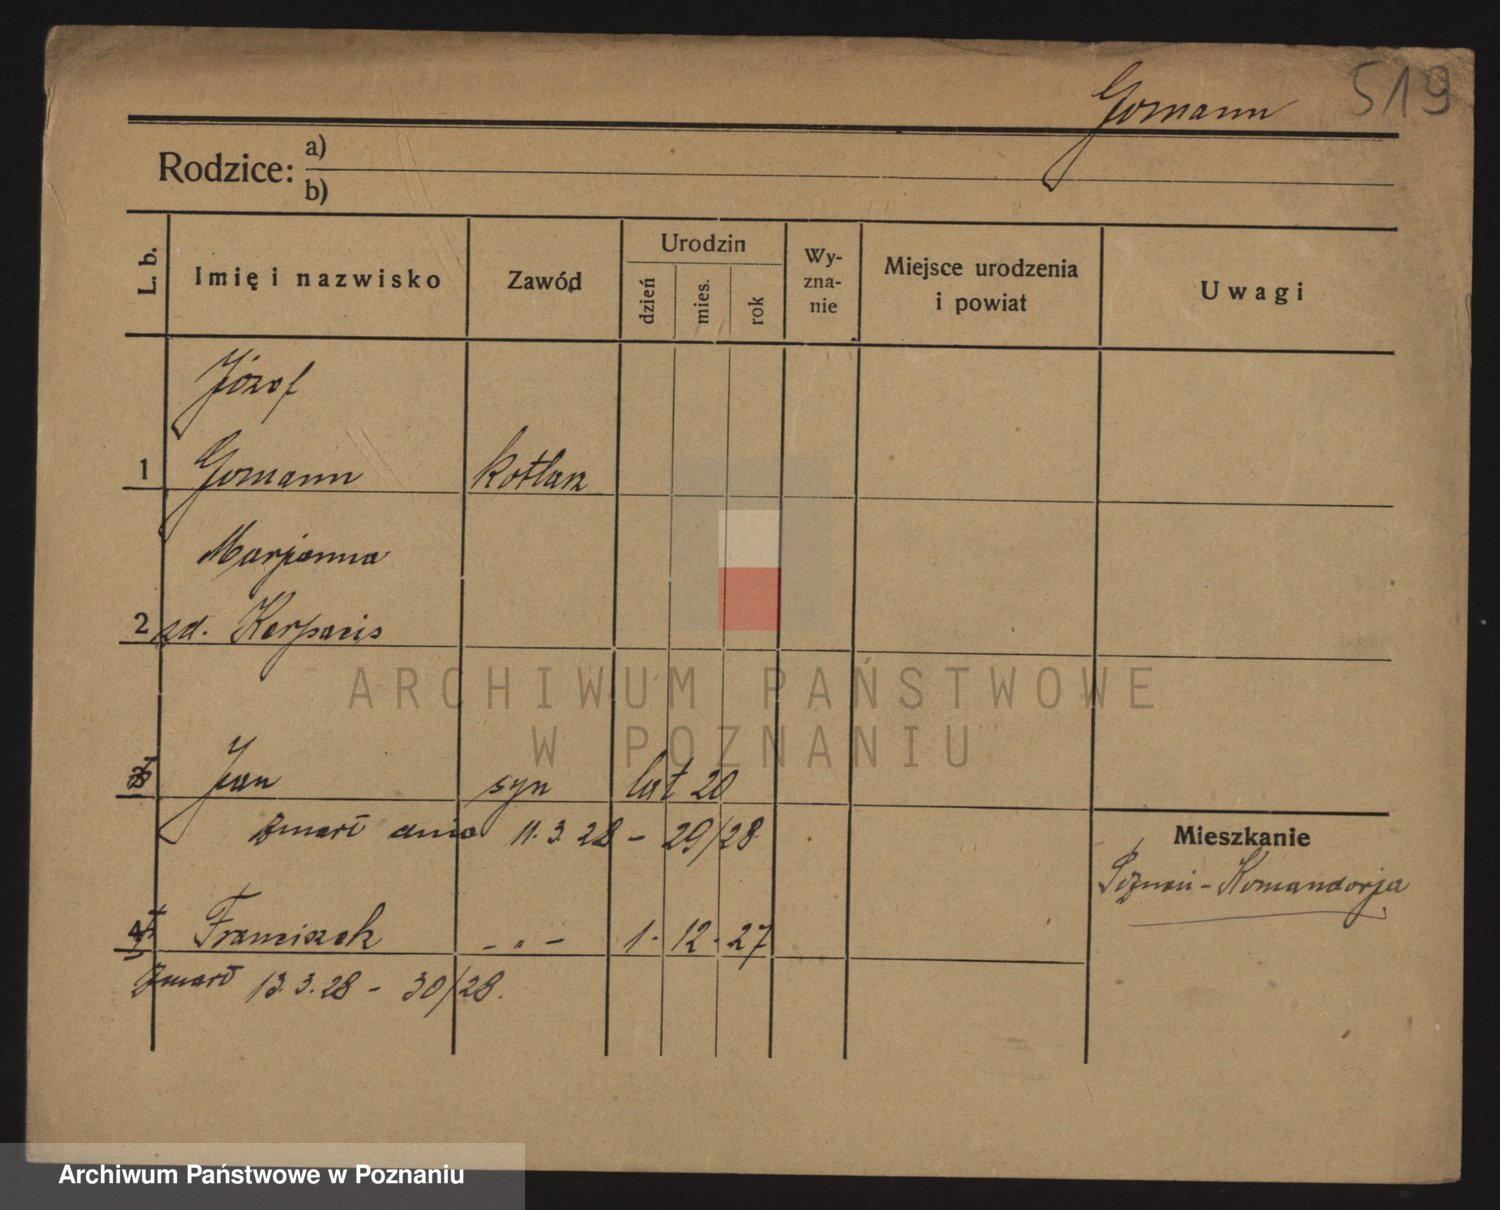 Gomann 519
Rodzice: a)
b)
L. b. Imię i nazwisko Zawód Urodzin dzień mies. rok Wy-zna-nie Miejsce urodzenia i powiat Uwagi
Józef
1 Gomann kotlarz
Marjanna
2 zd. Karpacis
ARCHIWUM PAŃSTWOWE
W POZNANIU
3 Jan syn lat 20
zmarł dnia 11.3.28 - 29/28
Mieszkanie
Poznań - Komandorja
4 Franciszek - " - 1. 12. 27
zmarł 13.3.28 - 30/28.
Archiwum Państwowe w Poznaniu